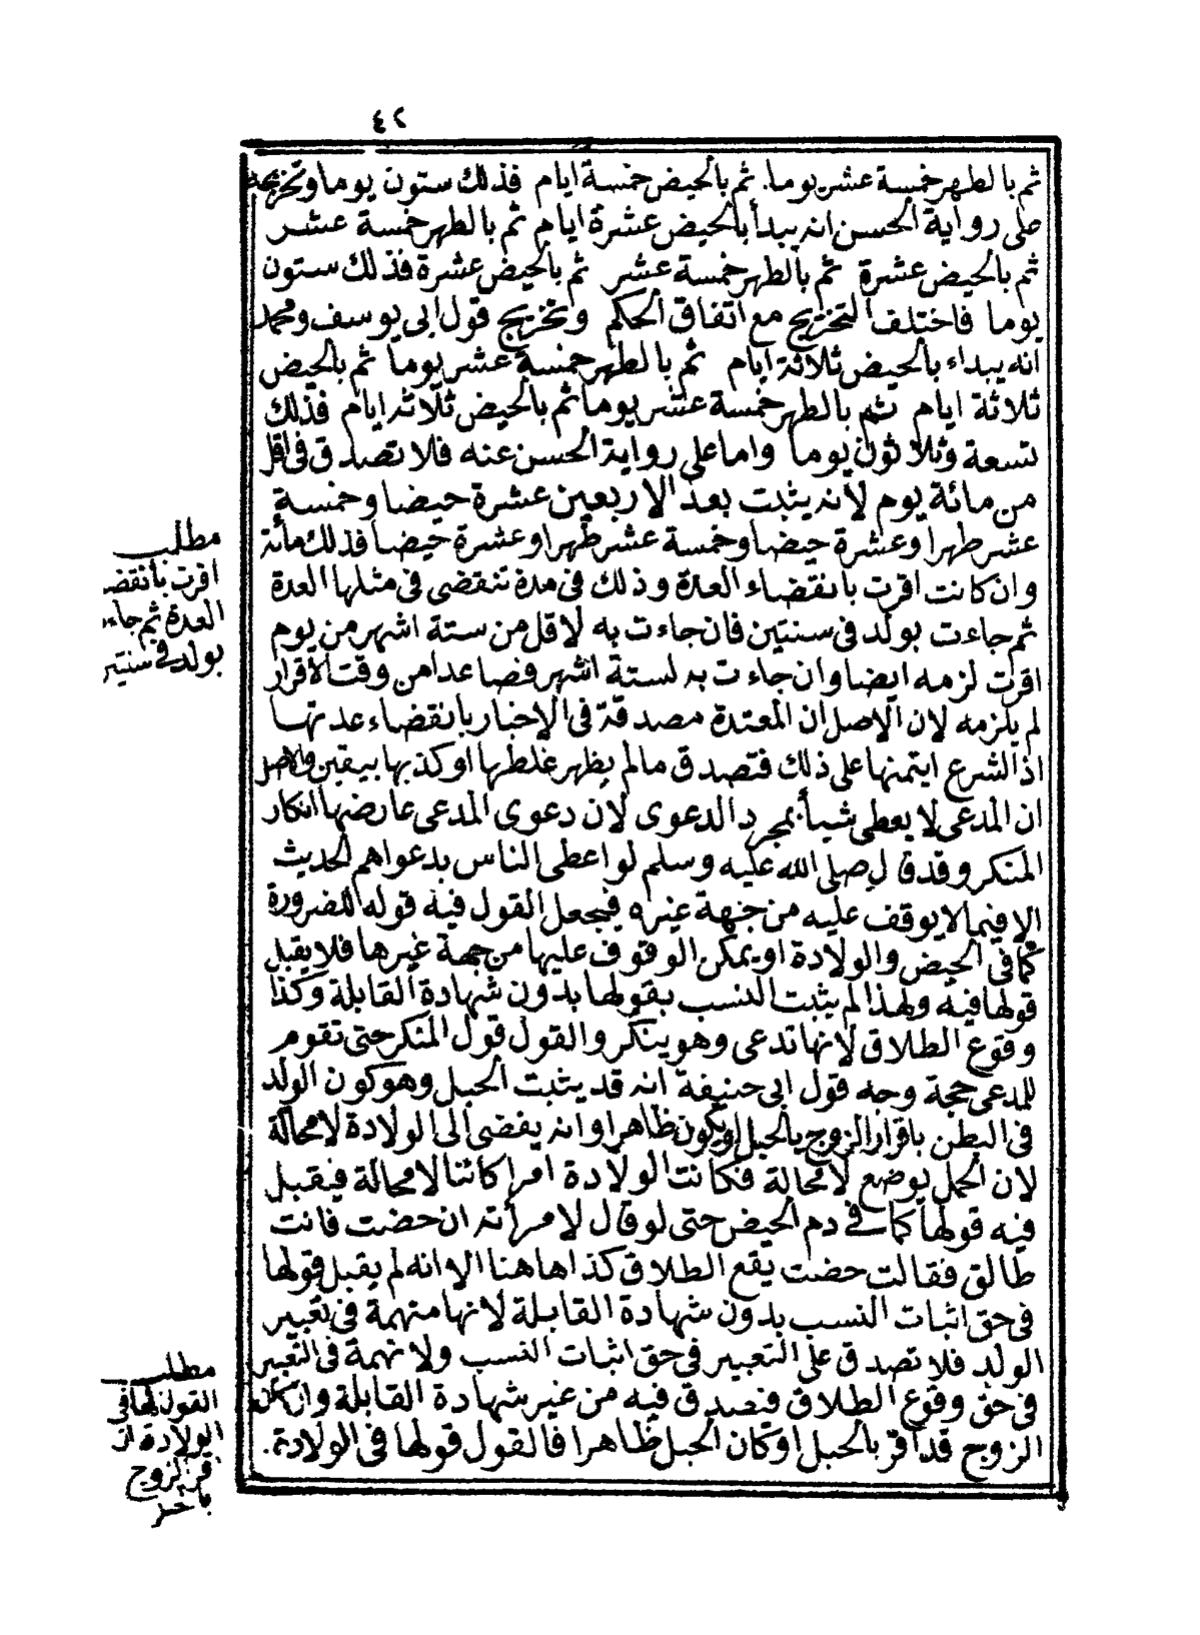 ٤٢
ثم بالطهر خمسة عشر يوما. ثم بالحيض خمسة ايام فذلك ستون يوما وتخريجه
على رواية الحسن انه يبدأ بالحيض عشرة ايام ثم بالطهر خمسة عشر
ثم بالحيض عشرة ثم بالطهر خمسة عشر ثم بالحيض عشرة فذلك ستون
يوما فاختلف التخريج مع اتفاق الحكم وتخريج قول ابى يوسف ومحمد
انه يبداء بالحيض ثلاثة ايام ثم بالطهر خمسة عشر يوما ثم بالحيض
ثلاثة ايام ثم بالطهر خمسة عشر يوما ثم بالحيض ثلاثه ايام فذلك
تسعة وثلاثون يوما واما على رواية الحسن عنه فلا تصدق فى اقل
من مائة يوم لانه يثبت بعد الاربعين عشرة حيضا وخمسة
عشر طهرا وعشرة حيضا وخمسة عشر طهرا وعشرة حيضا فذلك مائة
وان كانت اقرت بانقضاء العدة وذلك فى مدة تنقضى فى مثلها العدة
ثم جاءت بولد فى سنتين فان جاءت به لاقل من ستة اشهر من يوم
اقرت لزمه ايضا وان جاءت به لستة اشهر فصاعدا من وقت الاقرار
لم يلزمه لان الاصل ان المعتدة مصدقة فى الاخبار بانقضاء عدتها
اذ الشرع ايتمنها على ذلك فتصدق مالم يظهر غلطها او كذبها بيقين والاصل
ان المدعى لا يعطى شيأ بمجرد الدعوى لان دعوى المدعى عارضها انكار
المنكر وقد قال صلى الله عليه وسلم لو اعطى الناس بدعواهم الحديث
الا فيما لا يوقف عليه من جهة غيره فيجعل القول فيه قوله للضرورة
كما فى الحيض والولادة او يمكن الوقوف عليها من جهة غيرها فلا يقبل
قولها فيه ولهذا لم يثبت النسب بقولها بدون شهادة القابلة وكذا
وقوع الطلاق لانها تدعى وهو ينكر والقول قول المنكر حتى تقوم
للمدعى حجة وجه قول ابى حنيفة انه قد يثبت الحبل وهو كون الولد
فى البطن باقرار الزوج بالحبل او يكون ظاهرا وانه يفضى الى الولادة لا محالة
لان الحمل يوضع لا محالة فكانت الولادة امرا كائنا لا محالة فيقبل
فيه قولها كما فى دم الحيض حتى لو قال لامرأته ان حضت فانت
طالق فقالت حضت يقع الطلاق كذا هاهنا الا انه لم يقبل قولها
فى حق اثبات النسب بدون شهادة القابلة لانها متهمة فى تعيير
الولد فلا تصدق على التعيير فى حق اثبات النسب ولا تهمة فى التعيير
فى حق وقوع الطلاق فتصدق فيه من غير شهادة القابلة وان كان
الزوج قد اقر بالحبل او كان الحبل ظاهرا فالقول قولها فى الولادة.
مطلب
اقرت بانقضا
العدة ثم جاءت
بولد فى سنتين
مطلب
القول لها فى
الولادة ان
اقر الزوج